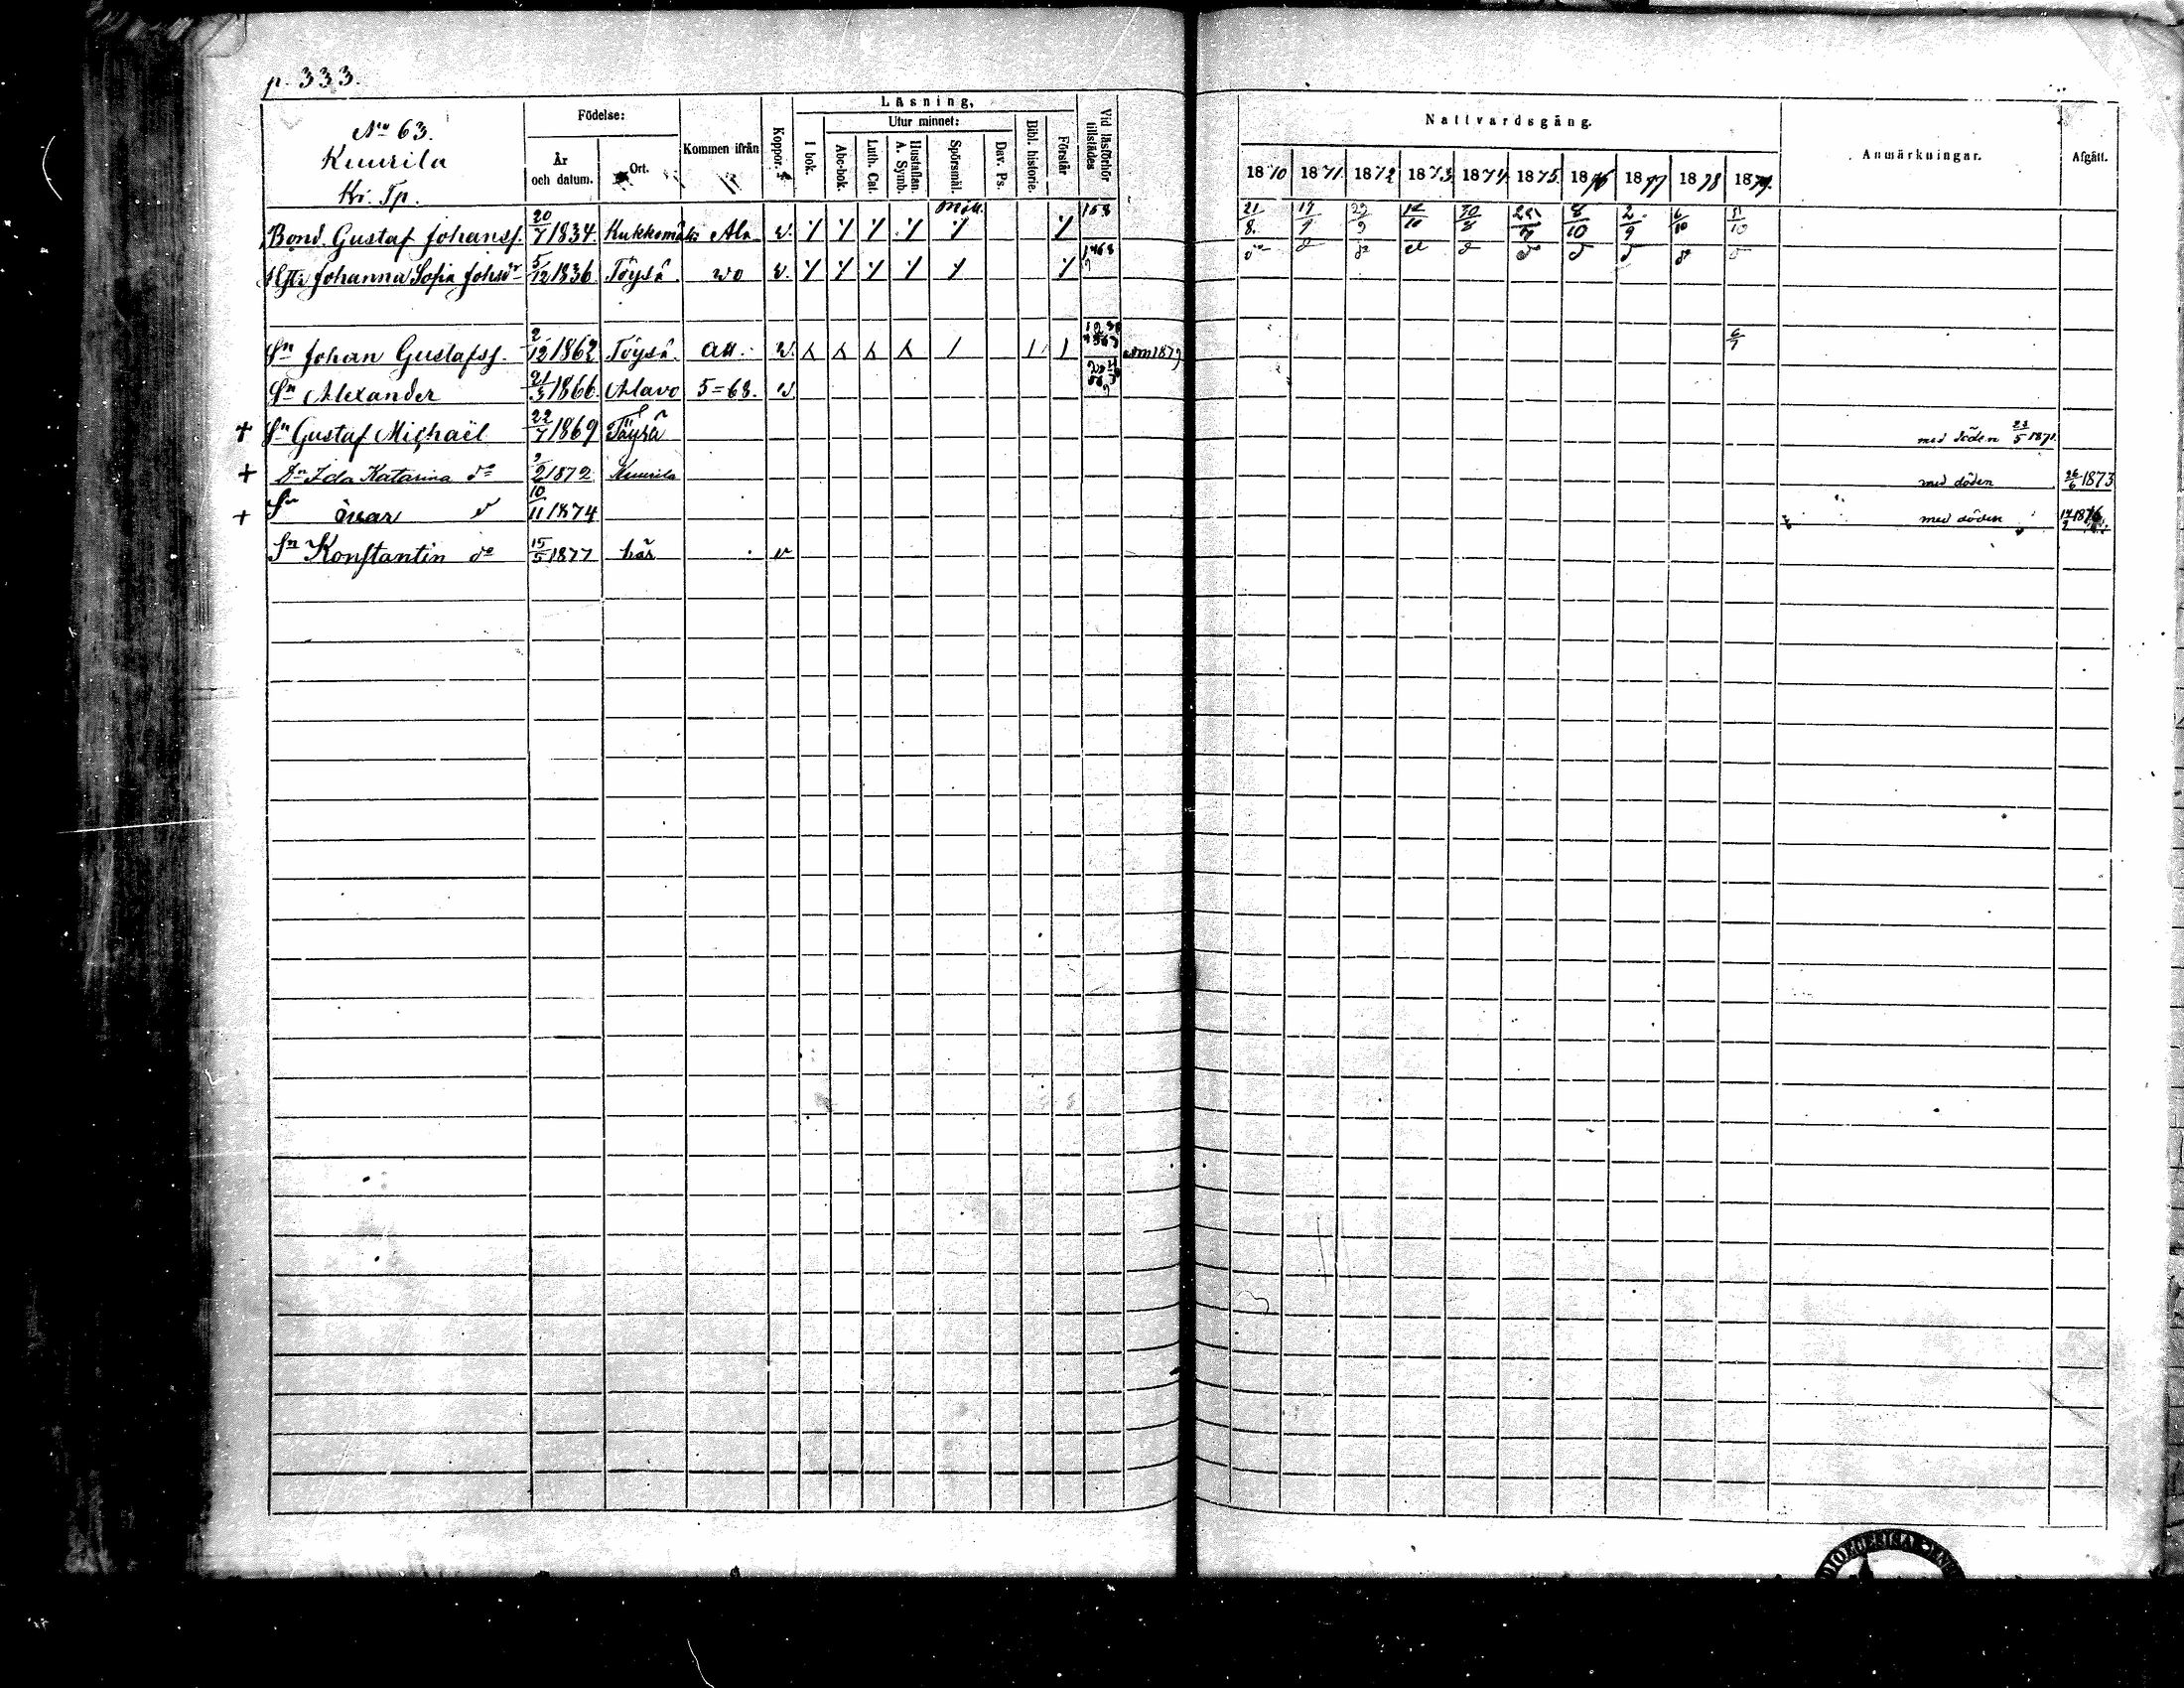 p. 333.
No 63.
Kuurila
Kr. Tp.
Födelse:
År och datum.
Ort.
Kommen ifrån
Koppor.
Läsning,
I bok.
Utur minnet:
Abc-bok.
Luth. Cat.
Hustaflan. A. Symb.
Spörsmål.
Dav. Ps.
Bibl. historie.
Förstår
Vid läsförhör tillstädes
Nattvardsgång.
1870 1871. 1872 1873. 1874. 1875. 1876 1877 1878 1879.
Anmärkningar.
Afgått.
Bond. Gustaf Johanss. 20/7 1834. Kukkomäki Ala v. 21/8. 8/10 2/9 6/10
Johanna Sofia Johsdr 5/12 1836. Töysä. vo v.
Sn Johan Gustafss. 2/12 1862 Töysä. att. v. adm 1879
Sn Alexander 21/3 1866. Alavo 5=68. v
+ Sn Gustaf Michaël 22/7 1869 Töysä med döden 23/5 1871.
+ Dr Ida Katarina do 2/2 1872 Kuurila med döden 26/6 1873
+ Sn Ivar do 10/11 1874 med döden 17/2 1876
Sn Konstantin do 15/5 1877 här v